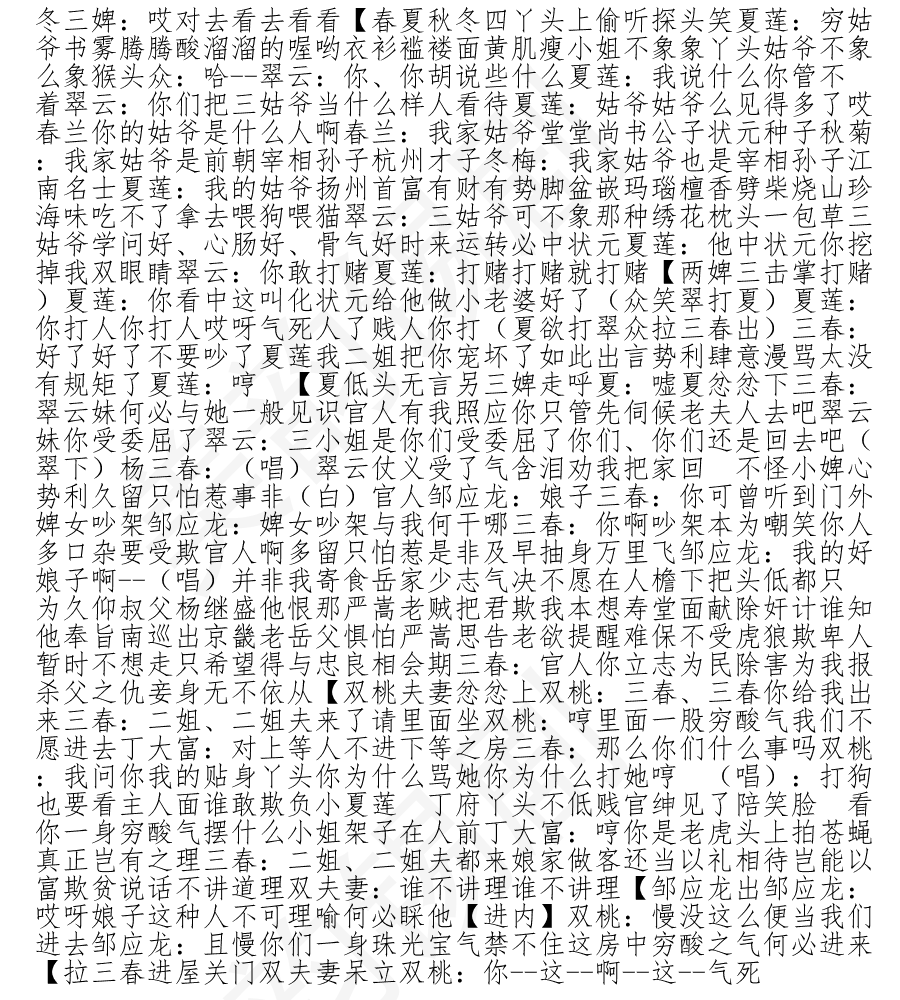 冬三婢：哎对去看去看看【春夏秋冬四丫头上偷听探头笑夏莲：穷姑
爷书雾腾腾酸溜溜的喔哟衣衫褴褛面黄肌瘦小姐不象象丫头姑爷不象
么象猴头众：哈--翠云：你、你胡说些什么夏莲：我说什么你管不
着翠云：你们把三姑爷当什么样人看待夏莲：姑爷姑爷么见得多了哎
春兰你的姑爷是什么人啊春兰：我家姑爷堂堂尚书公子状元种子秋菊
：我家姑爷是前朝宰相孙子杭州才子冬梅：我家姑爷也是宰相孙子江
南名士夏莲：我的姑爷扬州首富有财有势脚盆嵌玛瑙檀香劈柴烧山珍
海味吃不了拿去喂狗喂猫翠云：三姑爷可不象那种绣花枕头一包草三
姑爷学问好、心肠好、骨气好时来运转必中状元夏莲：他中状元你挖
掉我双眼睛翠云：你敢打赌夏莲：打赌打赌就打赌【两婢三击掌打赌
）夏莲：你看中这叫化状元给他做小老婆好了（众笑翠打夏）夏莲：
你打人你打人哎呀气死人了贱人你打（夏欲打翠众拉三春出）三春：
好了好了不要吵了夏莲我二姐把你宠坏了如此出言势利肆意漫骂太没
有规矩了夏莲：哼　【夏低头无言另三婢走呼夏：嘘夏忿忿下三春：
翠云妹何必与她一般见识官人有我照应你只管先伺候老夫人去吧翠云
妹你受委屈了翠云：三小姐是你们受委屈了你们、你们还是回去吧（
翠下）杨三春：（唱）翠云仗义受了气含泪劝我把家回　不怪小婢心
势利久留只怕惹事非（白）官人邹应龙：娘子三春：你可曾听到门外
婢女吵架邹应龙：婢女吵架与我何干哪三春：你啊吵架本为嘲笑你人
多口杂要受欺官人啊多留只怕惹是非及早抽身万里飞邹应龙：我的好
娘子啊--（唱）并非我寄食岳家少志气决不愿在人檐下把头低都只
为久仰叔父杨继盛他恨那严嵩老贼把君欺我本想寿堂面献除奸计谁知
他奉旨南巡出京畿老岳父惧怕严嵩思告老欲提醒难保不受虎狼欺卑人
暂时不想走只希望得与忠良相会期三春：官人你立志为民除害为我报
杀父之仇妾身无不依从【双桃夫妻忿忿上双桃：三春、三春你给我出
来三春：二姐、二姐夫来了请里面坐双桃：哼里面一股穷酸气我们不
愿进去丁大富：对上等人不进下等之房三春：那么你们什么事吗双桃
：我问你我的贴身丫头你为什么骂她你为什么打她哼　（唱）：打狗
也要看主人面谁敢欺负小夏莲　丁府丫头不低贱官绅见了陪笑脸　看
你一身穷酸气摆什么小姐架子在人前丁大富：哼你是老虎头上拍苍蝇
真正岂有之理三春：二姐、二姐夫都来娘家做客还当以礼相待岂能以
富欺贫说话不讲道理双夫妻：谁不讲理谁不讲理【邹应龙出邹应龙：
哎呀娘子这种人不可理喻何必睬他【进内】双桃：慢没这么便当我们
进去邹应龙：且慢你们一身珠光宝气禁不住这房中穷酸之气何必进来
【拉三春进屋关门双夫妻呆立双桃：你--这--啊--这--气死